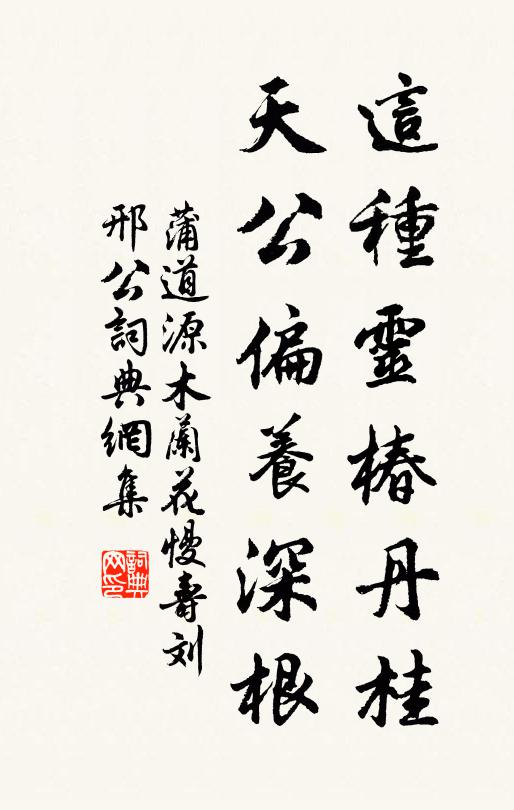 這種靈椿丹桂
天公偏養深根
蒲道源木蘭花慢壽刘
邢公詞典網集
詞典网印